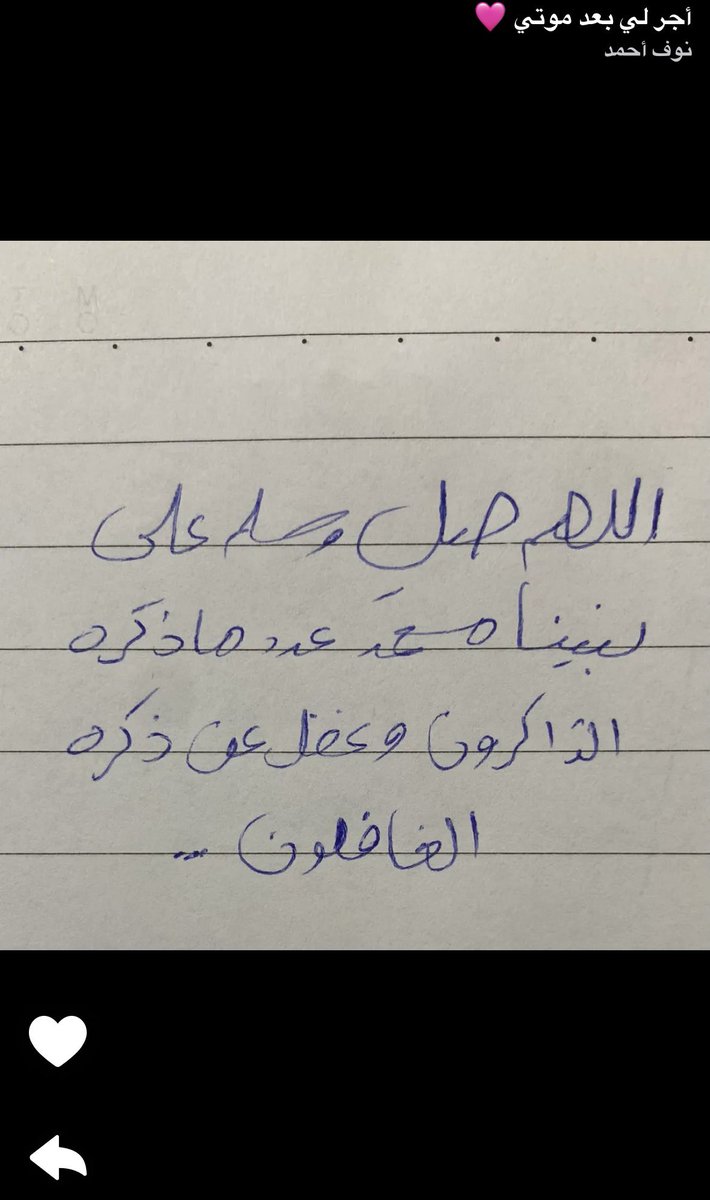 أجر لي بعد موتي 🩷
نوف أحمد
اللهم صل وسلم على
نبينا محمَد عدد ماذكره
الذاكرون وغفل عن ذكره
الغافلون ..